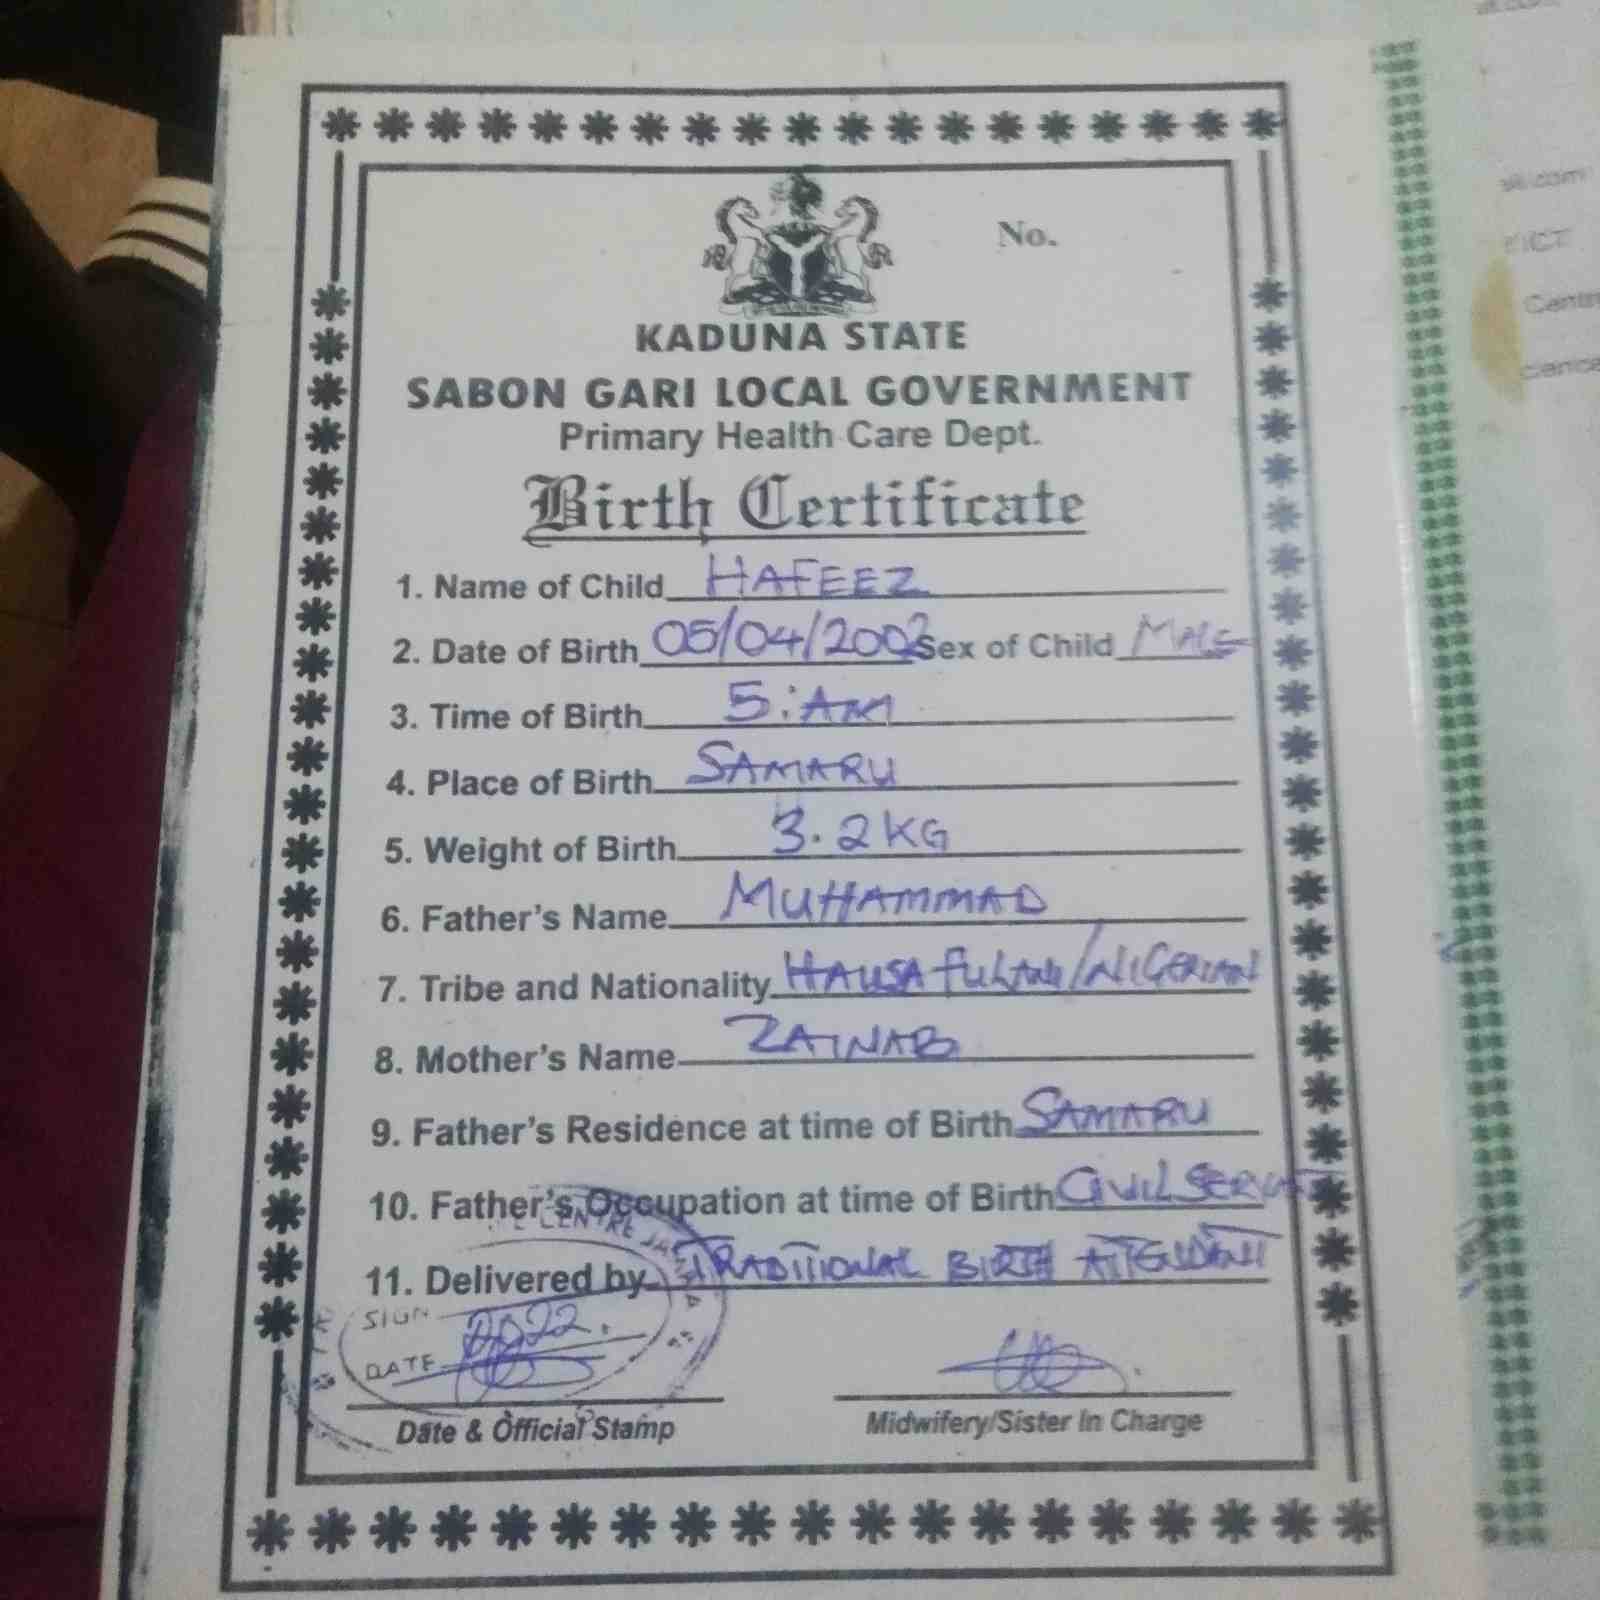 No.
KADUNA STATE
SABON GARI LOCAL GOVERNMENT
Primary Health Care Dept.
Birth Certificate
1. Name of Child HAFEEZ
2. Date of Birth 05/04/2002 Sex of Child MALE
3. Time of Birth 5:AM
4. Place of Birth SAMARU
5. Weight of Birth 3.2KG
6. Father's Name MUHAMMAD
7. Tribe and Nationality HAUSA FULANI/NIGERIAN
8. Mother's Name ZAINAB
9. Father's Residence at time of Birth SAMARU
10. Father's Occupation at time of Birth CIVIL
11. Delivered by TRADITIONAL BIRTH ATTENDANT
CENTRE
SIGN
DATE 2022.
Date & Official Stamp
Midwifery/Sister In Charge